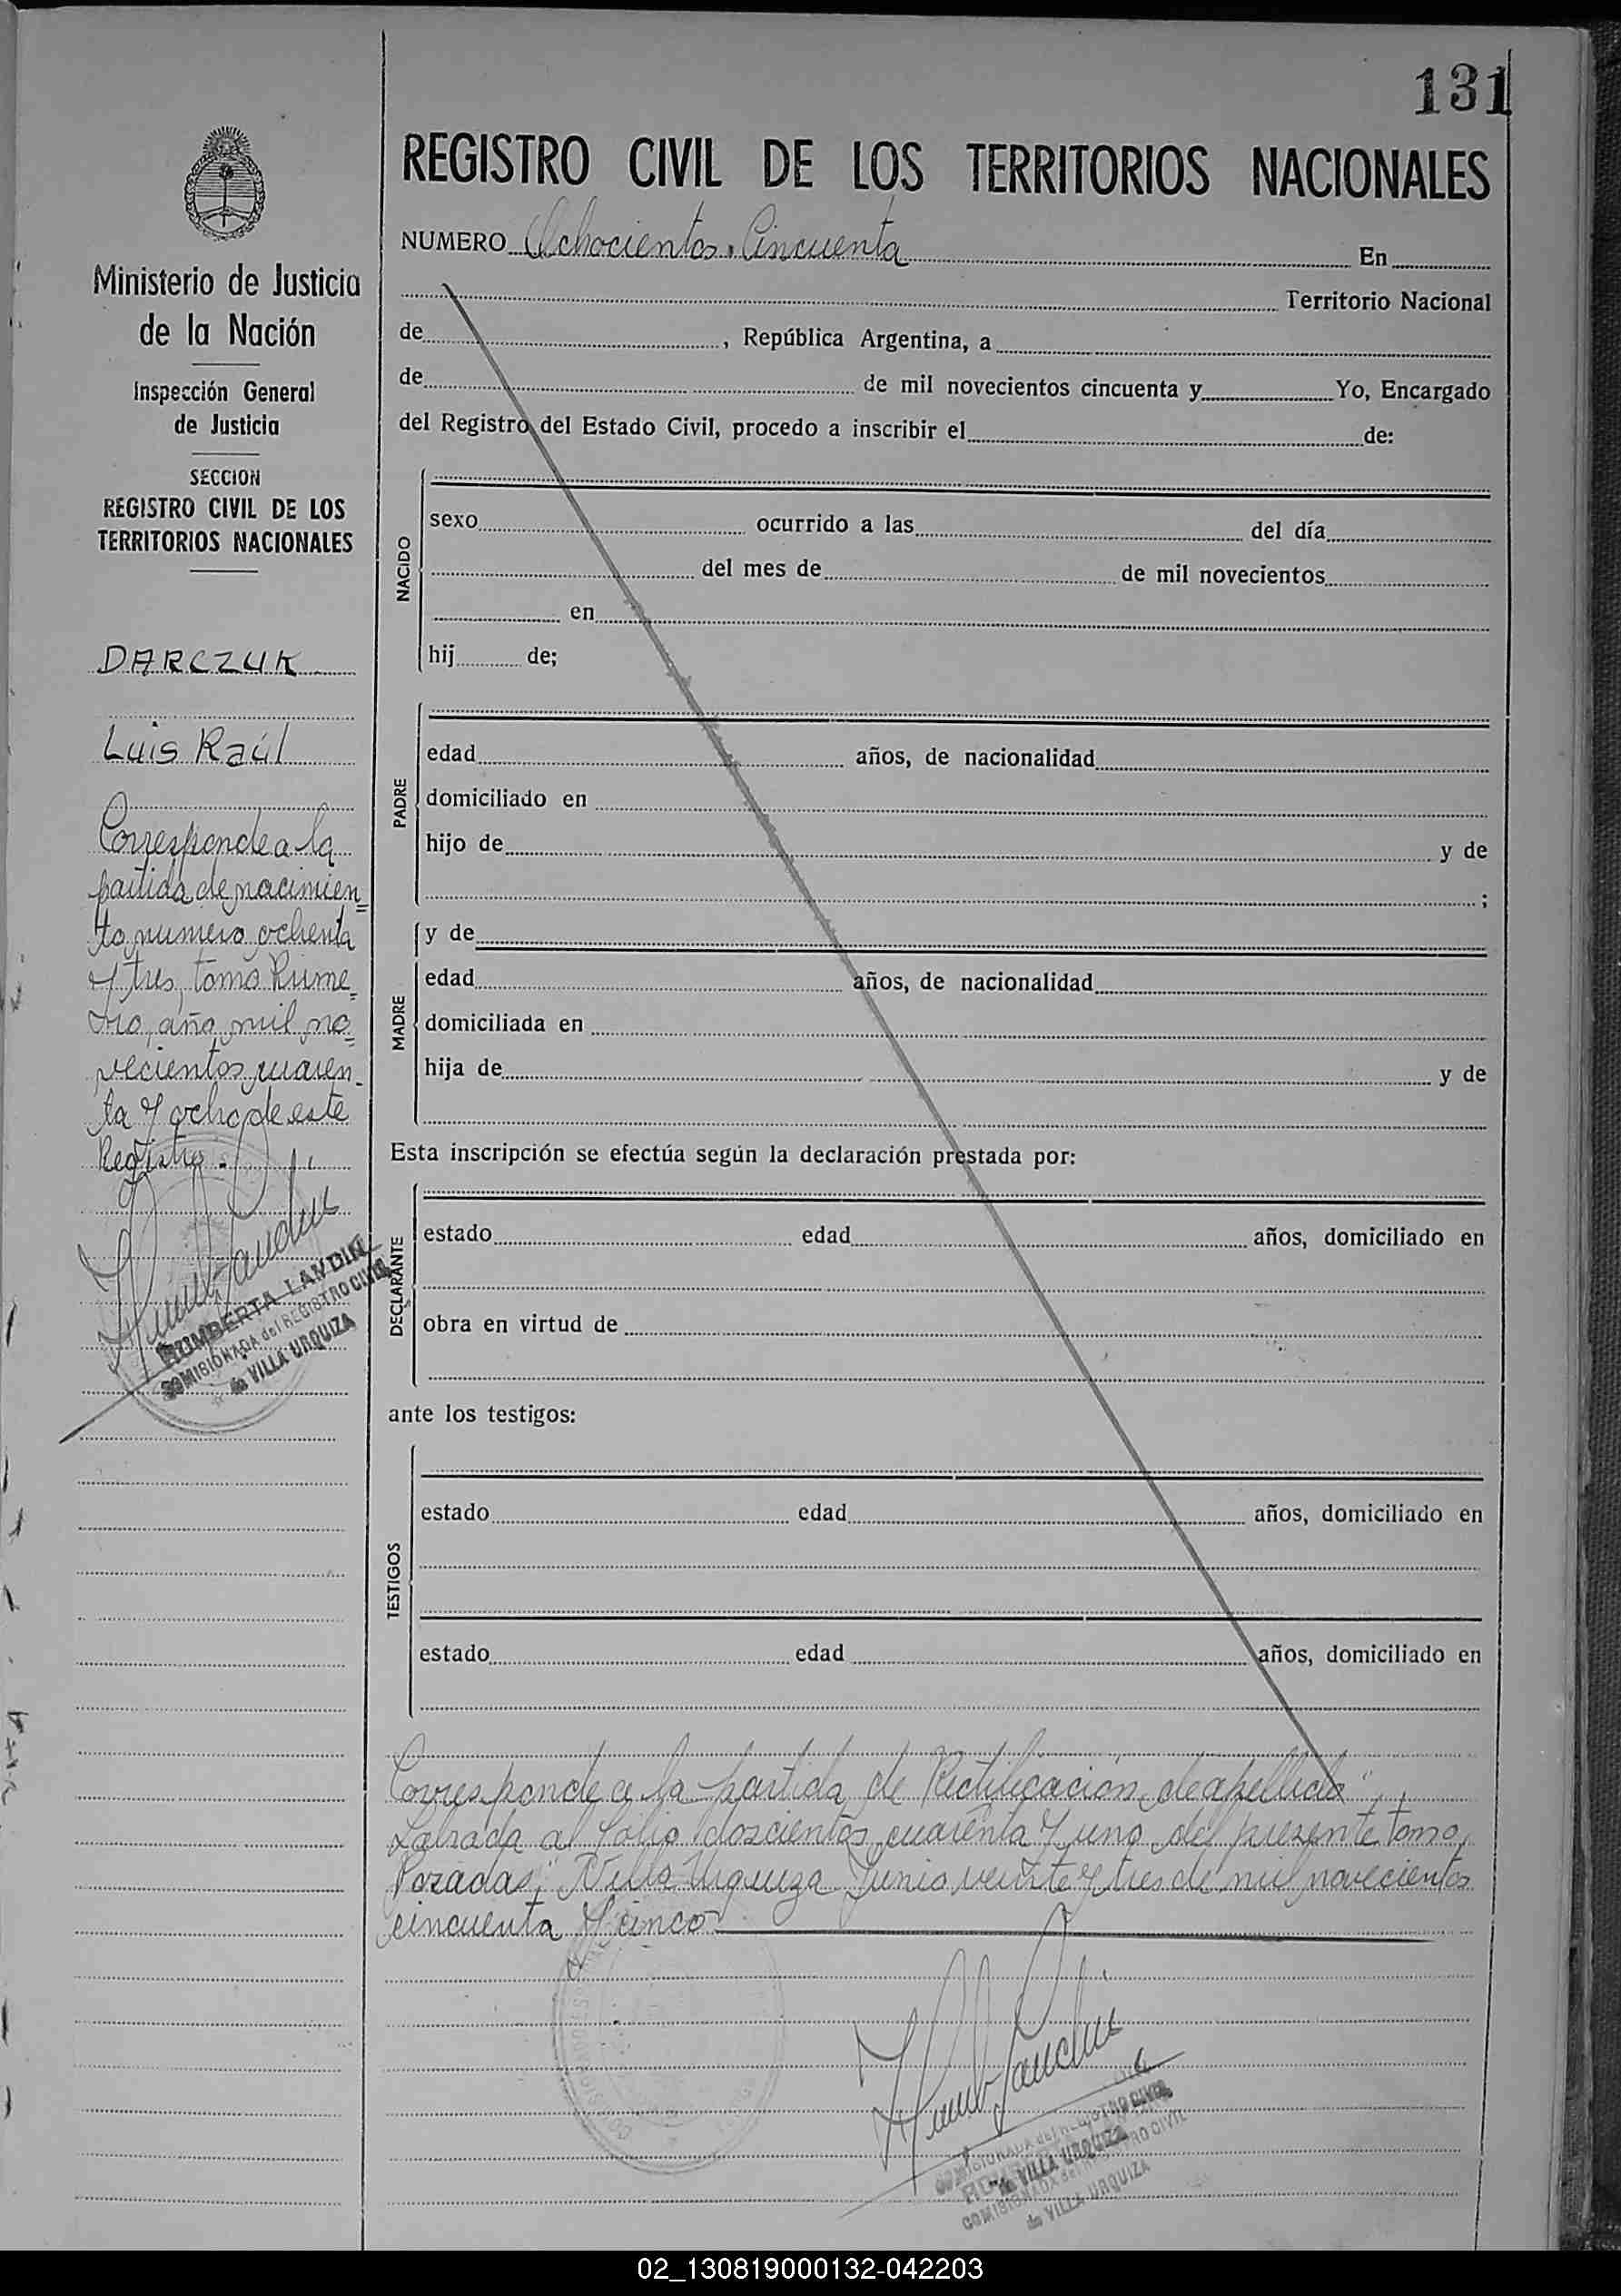 131
REGISTRO CIVIL DE LOS TERRITORIOS NACIONALES
NUMERO Ochocientos Cincuenta En
Territorio Nacional
de , República Argentina, a
de de mil novecientos cincuenta y Yo, Encargado
del Registro del Estado Civil, procedo a inscribir el de:
NACIDO
sexo ocurrido a las del día
del mes de de mil novecientos
en
hij de;
PADRE
edad años, de nacionalidad
domiciliado en
hijo de y de
;
MADRE
y de
edad años, de nacionalidad
domiciliada en
hija de y de
Esta inscripción se efectúa según la declaración prestada por:
DECLARANTE
estado edad años, domiciliado en
obra en virtud de
ante los testigos:
TESTIGOS
estado edad años, domiciliado en
estado edad años, domiciliado en
Corresponde a la partida de Rectificación de apellido"
Labrada al folio doscientos cuarenta y uno del presente tomo,
Pozadas, Villa Urquiza Junio veinte y tres de mil novecientos
cincuenta y cinco
COMISIONADA del REGISTRO CIVIL
de VILLA URQUIZA
COMISIONADA del REGISTRO CIVIL
de VILLA URQUIZA
Ministerio de Justicia
de la Nación
Inspección General
de Justicia
SECCION
REGISTRO CIVIL DE LOS
TERRITORIOS NACIONALES
DARCZUK
Luis Raúl
Corresponde a la
partida de nacimien=
to numero ochenta
y tres, tomo Prime=
ro, año mil no=
vecientos cuaren-
ta y ocho de este
Registro.-
HUMBERTA LANDIN
COMISIONADA del REGISTRO CIVIL
de VILLA URQUIZA
02_130819000132-042203